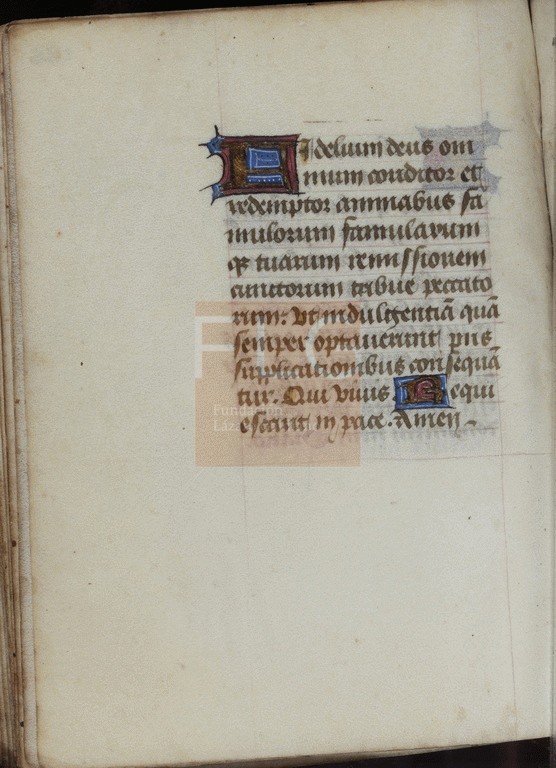 Fidelium deus om
nium conditor et
redemptor animabus fa
mulorum famularum
qȝ tuarum remissionem
cunctorum tribue peccato
rum: Ut indulgentiā quā
semper optauerunt piis
supplicationibus consequā
tur. Qui viuis Requi
escant in pace. Amen
FLG
Fundación